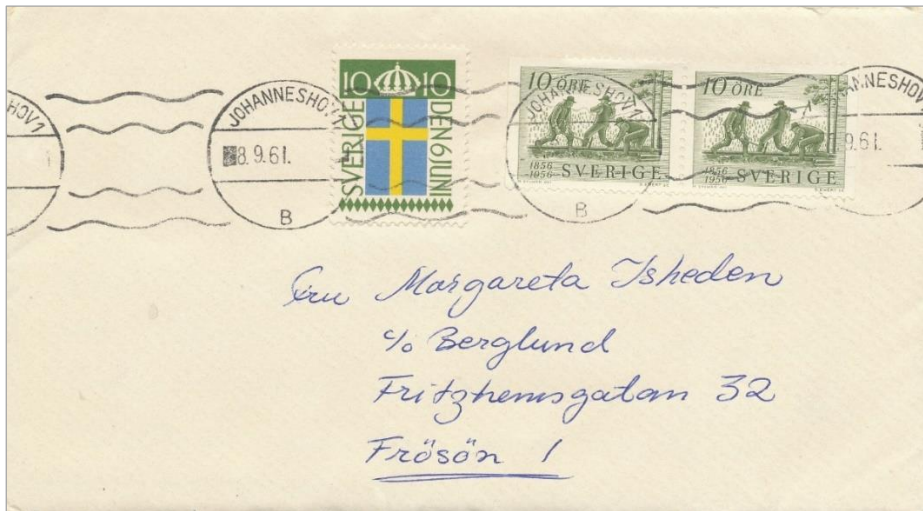 JOHANNESHOV 1
8.9.61.
B
SVERIGE
10 10
DEN 6 JUNI
JOHANNESHOV 1
B
10 ÖRE
1856
1956 SVERIGE
10 ÖRE
1856
1956 SVERIGE
9.61.
Fru Margareta Isheden
c/o Berglund
Fritzhemsgatan 32
Frösön 1